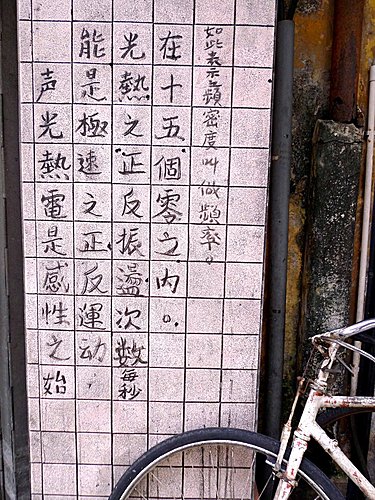 声光熱電是感性之始
能是極速之正反運动，
光熱之正反振盪次數每秒
在十五個零之內。
如此表示之頻密度叫做頻率。